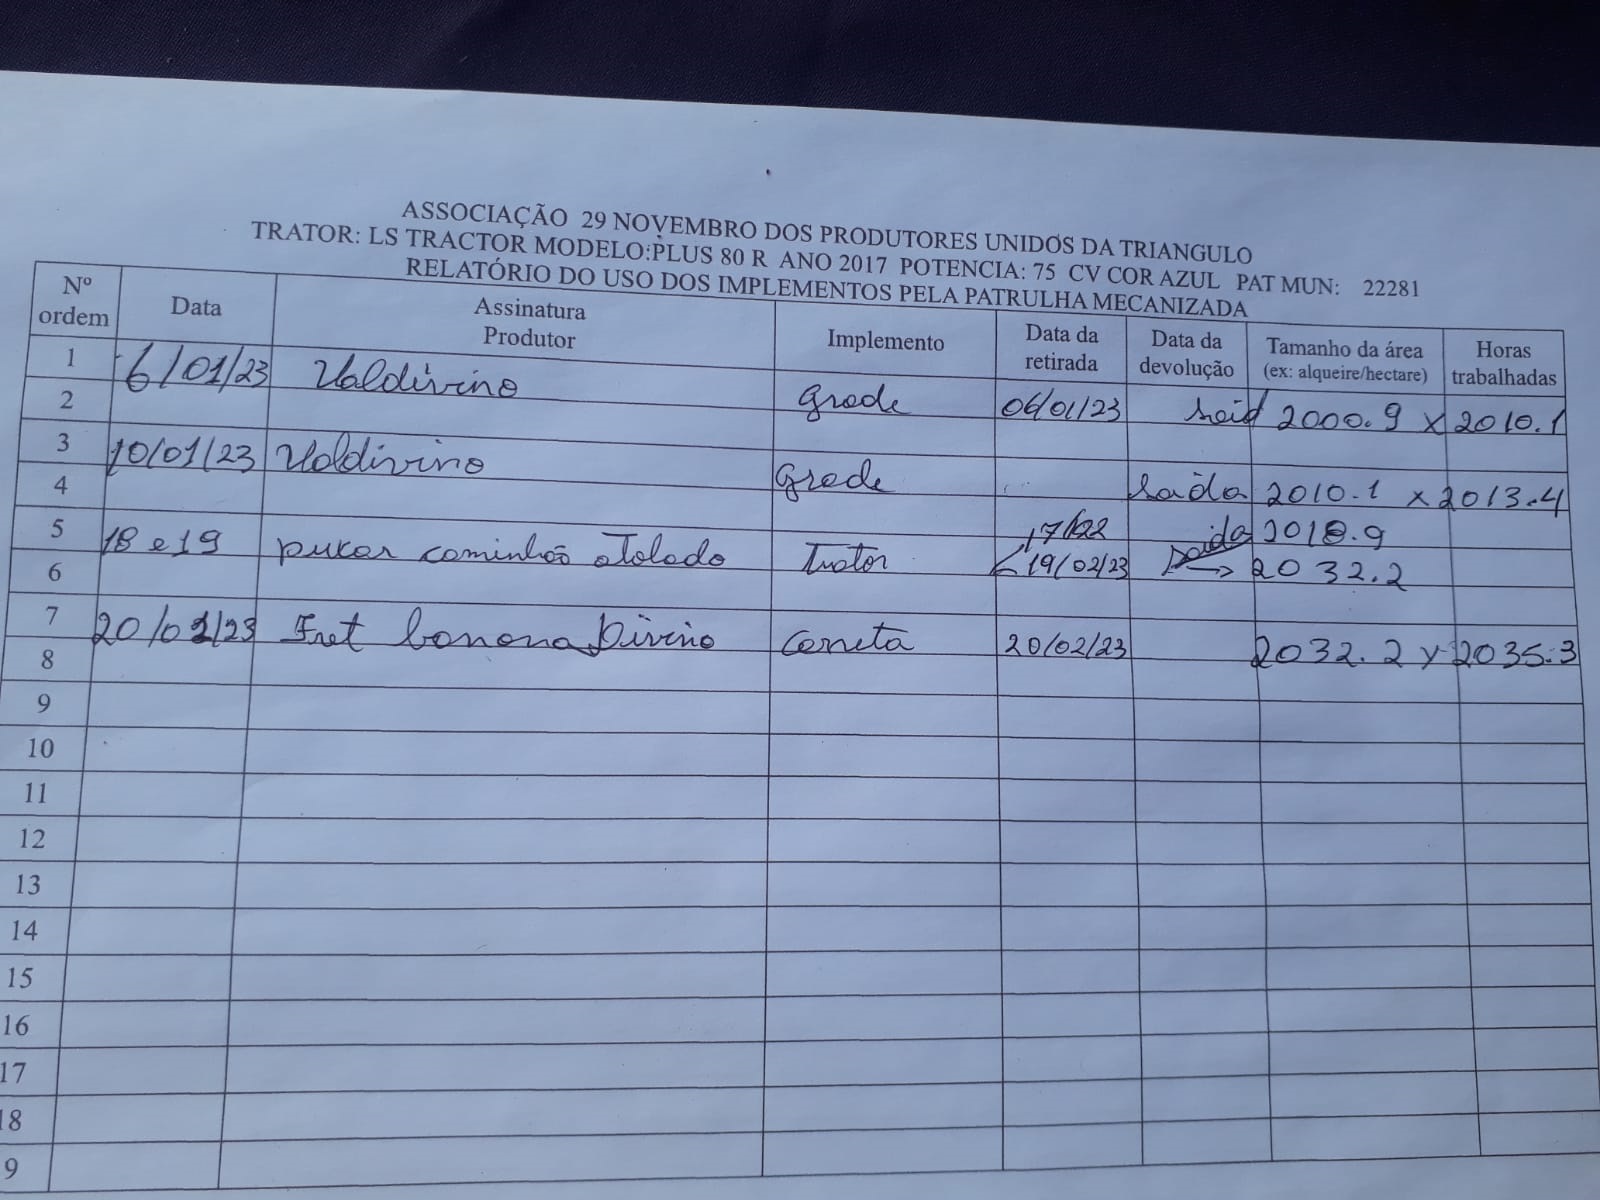 ASSOCIAÇÃO 29 NOVEMBRO DOS PRODUTORES UNIDOS DA TRIANGULO
TRATOR: LS TRACTOR MODELO:PLUS 80 R ANO 2017 POTENCIA: 75 CV COR AZUL PAT MUN: 22281
RELATÓRIO DO USO DOS IMPLEMENTOS PELA PATRULHA MECANIZADA
Nº ordem Data Assinatura Produtor Implemento Data da retirada Data da devolução Tamanho da área (ex: alqueire/hectare) Horas trabalhadas
1 6/01/23 Valdivino Grade 06/01/23 said 2000.9 x 2010.1
2
3 10/01/23 Valdivino Grade saida 2010.1 x 2013.4
4
5 18 e 19 puxar caminhão atolado Trator 17/ saida 2018.9
6 19/02/23 → 2032.2
7 20/02/23 Fret banana Divino Carreta 20/02/23 2032.2 x 2035.3
8
9
10
11
12
13
14
15
16
17
18
9